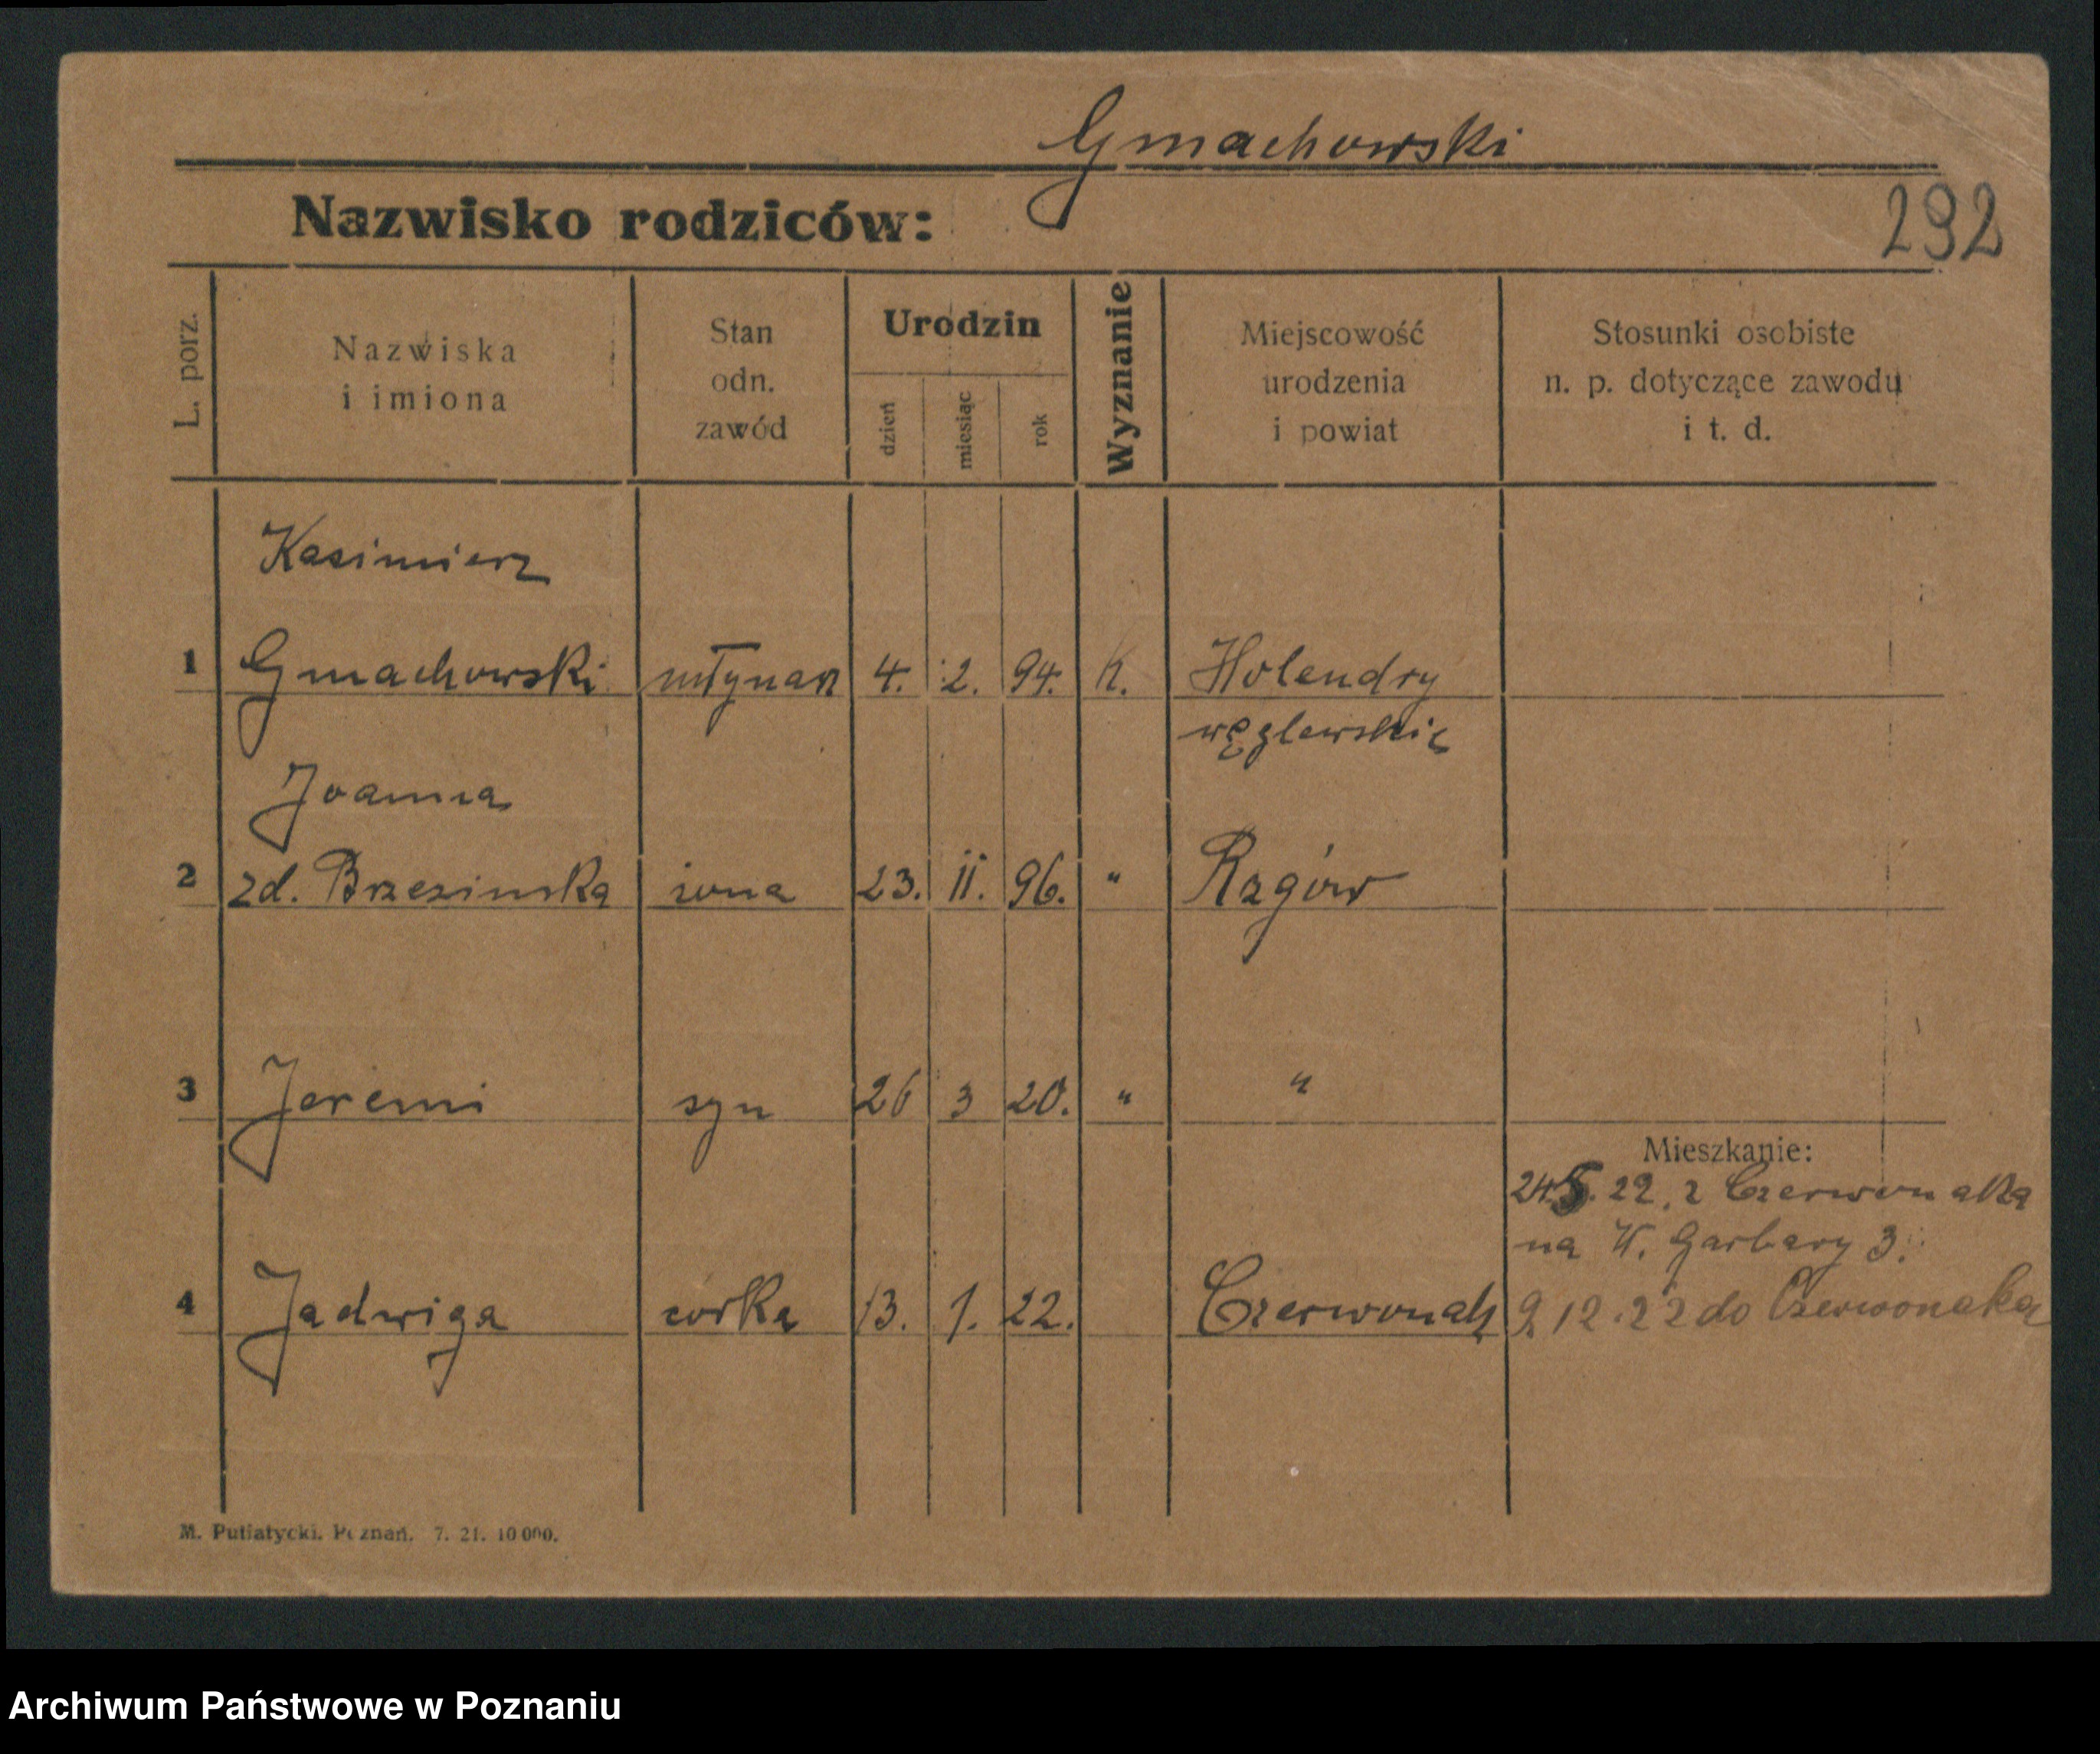 Gmachowski
Nazwisko rodziców:
292
L. porz.
Nazwiska
i imiona
Stan
odn.
zawód
Urodzin
dzień
miesiąc
rok
Wyznanie
Miejscowość
urodzenia
i powiat
Stosunki osobiste
n. p. dotyczące zawodu
i t. d.
Kasimierz
1 Gmachowski młynarz 4. 2. 94. K. Holendry
węglewskie
Joanna
2 zd. Brzezinska żona 23. 11. 96. " Rzgów
3 Jeremi syn 26 3 20. " "
Mieszkanie:
24.5.22. z Czerwonaka
na W. Garbary 3.
4 Jadwiga córka 13. 1. 22. Czerwonak 9 12.22 do Czerwonaka
M. Putiatycki. Poznań. 7. 21. 10 000.
Archiwum Państwowe w Poznaniu